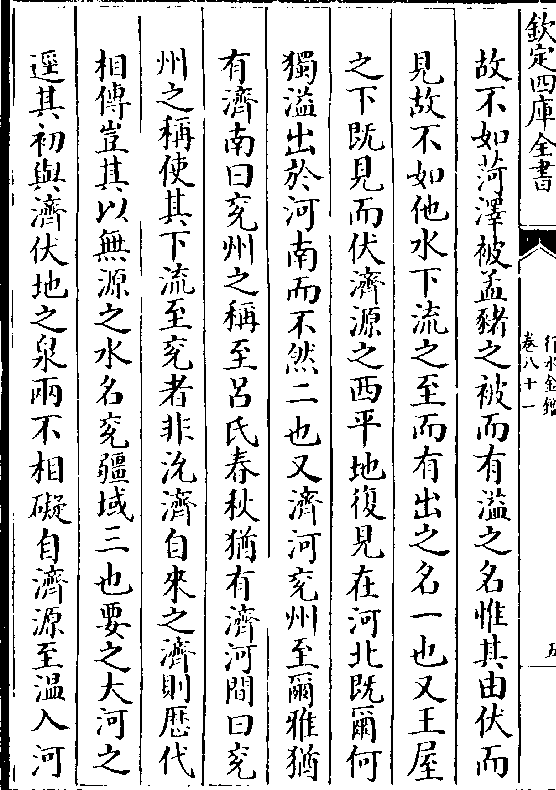 欽定四庫全書
行水金鑑
卷八十一
五
故不如菏澤被孟豬之被而有溢之名惟其由伏而
見故不如他水下流之至而有出之名一也又王屋
之下既見而伏濟源之西平地復見在河北既爾何
獨溢出於河南而不然二也又濟河兖州至爾雅猶
有濟南曰兖州之稱至呂氏春秋猶有濟河間曰兖
州之稱使其下流至兖者非沇濟自來之濟則歴代
相傳豈其以無源之水名兖疆域三也要之大河之
逕其初與濟伏地之泉兩不相礙自濟源至温入河